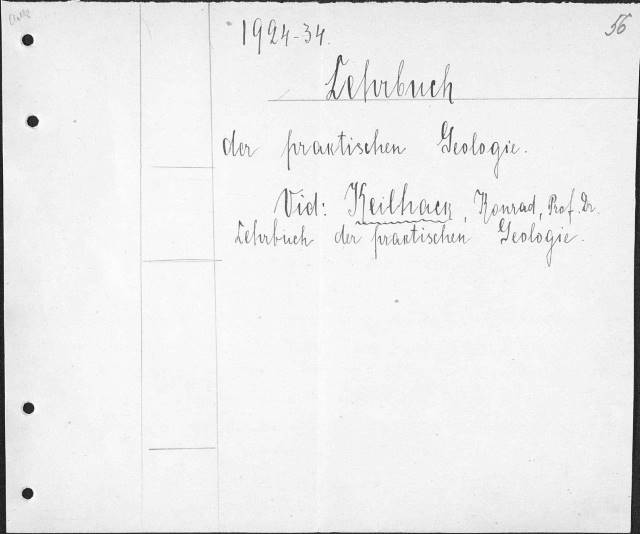 56
1924-34.
Lehrbuch
der praktischen Geologie.
Vid: Keilhack, Konrad, Prof. Dr.
Lehrbuch der praktischen Geologie.